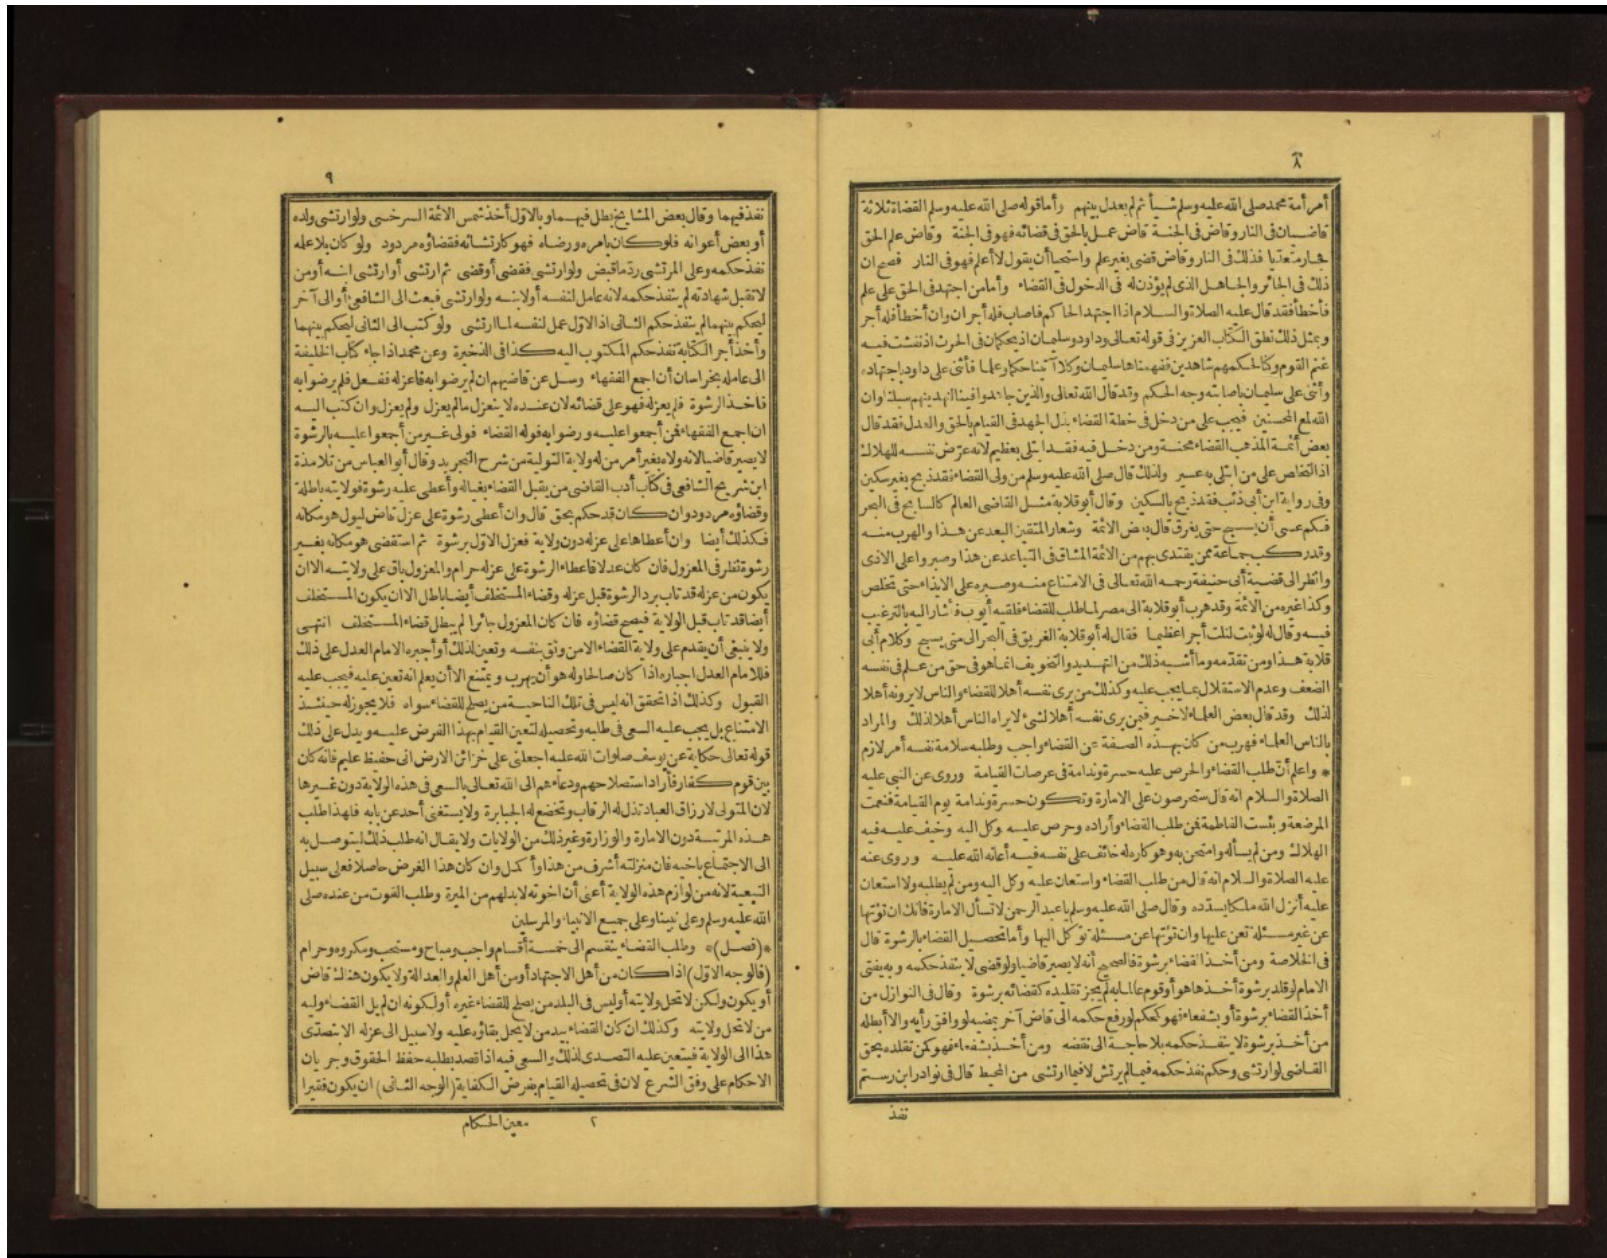 ٨
أمر أمة محمد صلى الله عليه وسلم شيأ ثم لم يعدل بينهم وأما قوله صلى الله عليه وسلم القضاة ثلاثة
قاضيان فى النار وقاض فى الجنة قاض عمل بالحق فى قضائه فهو فى الجنة وقاض علم الحق
فجار متعديا فذلك فى النار وقاض قضى بغير علم واستحيا أن يقول لا أعلم فهو فى النار فصح ان
ذلك فى الجائر والجاهل الذى لم يؤذن له فى الدخول فى القضاء وأما من اجتهد فى الحق على علم
فأخطأ فقد قال عليه الصلاة والسلام اذا اجتهد الحاكم فاصاب فله أجران وان أخطأ فله أجر
وبمثل ذلك نطق الكتاب العزيز فى قوله تعالى وداود وسليمان اذ يحكمان فى الحرث اذ نفشت فيه
غنم القوم وكنا لحكمهم شاهدين ففهمناها سليمان وكلا آتينا حكما وعلما فأثنى على داود باجتهاده
وأثنى على سليمان باصابته وجه الحكم وقد قال الله تعالى والذين جاهدوا فينا لنهدينهم سبلنا وان
الله لمع المحسنين فيجب على من دخل فى خطة القضاء بذل الجهد فى القيام بالحق والعدل فقد قال
بعض أئمة المذهب القضاء محنة ومن دخل فيه فقد ابتلى بعظيم لانه عرّض نفسه للهلاك
اذ التخلص على من ابتلى به عسير ولذلك قال صلى الله عليه وسلم من ولى القضاء فقد ذبح بغير سكين
وفى رواية ابن أبى ذئب فقد ذبح بالسكين وقال أبو قلابة مثل القاضى العالم كالسابح فى البحر
فكم عسى أن يسبح حتى يغرق قال بعض الائمة وشعار المتقين البعد عن هذا والهرب منه
وقد ركب جماعة ممن يقتدى بهم من الائمة المشاق فى التباعد عن هذا وصبروا على الاذى
وانظر الى قضية أبى حنيفة رحمه الله تعالى فى الامتناع منه وصبره على الايذاء حتى تخلص
وكذا غيره من الائمة وقد هرب أبو قلابة الى مصر لما طلب للقضاء فلقيه أيوب فأشار اليه بالترغيب
فيه وقال له لو ثبت لنلت أجرا عظيما فقال له أبو قلابة الغريق فى البحر الى متى يسبح وكلام أبى
قلابة هذا ومن تقدمه وما أشبه ذلك من التهديد والتخويف انما هو فى حق من علم فى نفسه
الضعف وعدم الاستقلال بما يجب عليه وكذلك من يرى نفسه أهلا للقضاء والناس لا يرونه أهلا
لذلك وقد قال بعض العلماء لاخير فيمن يرى نفسه أهلا لشئ لا يراه الناس أهلا لذلك والمراد
بالناس العلماء فهرب من كان بهذه الصفة عن القضاء واجب وطلبه سلامة نفسه أمر لازم
* واعلم أن طلب القضاء والحرص عليه حسرة وندامة فى عرصات القيامة وروى عن النبى عليه
الصلاة والسلام انه قال ستحرصون على الامارة وتكون حسرة وندامة يوم القيامة فنعمت
المرضعة وبئست الفاطمة فمن طلب القضاء وأراده وحرص عليه وكل اليه وخيف عليه فيه
الهلاك ومن لم يسأله وامتحن به وهو كاره له خائف على نفسه فيه أعانه الله عليه وروى عنه
عليه الصلاة والسلام انه قال من طلب القضاء واستعان عليه وكل اليه ومن لم يطلبه ولا استعان
عليه أنزل الله ملكا يسدده وقال صلى الله عليه وسلم يا عبد الرحمن لا تسأل الامارة فانك ان تؤتها
عن غير مسئلة تعن عليها وان تؤتها عن مسئلة توكل اليها وأما تحصيل القضاء بالرشوة قال
فى الخلاصة ومن أخذ القضاء برشوة فالصحيح أنه لا يصير قاضيا ولو قضى لا ينفذ حكمه وبه يفتى
الامام لو قلد برشوة أخذها هو أو قومه عالما به لم يجز تقليده كقضائه برشوة وقال فى النوازل من
أخذ القضاء برشوة أو بشفعاء فهو كمحكم لو رفع حكمه الى قاض آخر يمضيه لو وافق رأيه والا أبطله
من أخذ برشوة لا ينفذ حكمه بلا حاجة الى نقضه ومن أخذ بشفعاء فهو كمن تقلده بحق
القاضى لو ارتشى وحكم نفذ حكمه فيما لم يرتش لا فيما ارتشى من المحيط قال فى نوادر ابن رستم
نفذ
٩
نفذ فيهما وقال بعض المشايخ بطل فيهما وبالاوّل أخذ شمس الائمة السرخسى ولو ارتشى ولده
أو بعض أعوانه فلو كان بامره ورضاه فهو كارتشائه فقضاؤه مردود ولو كان بلا علمه
نفذ حكمه وعلى المرتشى رد ما قبض ولو ارتشى فقضى أو قضى ثم ارتشى أو ارتشى ابنه أو من
لا تقبل شهادته لم ينفذ حكمه لانه عامل لنفسه أو لابنه ولو ارتشى فبعث الى الشافعى أو الى آخر
ليحكم بينهما لم ينفذ حكم الثانى اذ الاوّل عمل لنفسه لما ارتشى ولو كتب الى الثانى ليحكم بينهما
وأخذ أجر الكتابة نفذ حكم المكتوب اليه كذا فى الذخيرة وعن محمد اذا جاء كتاب الخليفة
الى عامله بخراسان أن اجمع الفقهاء وسل عن قاضيهم ان لم يرضوا به فاعزله ففعل فلم يرضوا به
فاخذ الرشوة فلم يعزله فهو على قضائه لان عنده لا ينعزل مالم يعزل ولم يعزل وان كتب اليه
ان اجمع الفقهاء فمن أجمعوا عليه ورضوا به فوله القضاء فولى غير من أجمعوا عليه بالرشوة
لا يصير قاضيا لانه ولاه بغير أمر من له ولاية التولية من شرح التجريد وقال أبو العباس من تلامذة
ابن شريح الشافعى فى كتاب أدب القاضى من يقبل القضاء بقباله وأعطى عليه رشوة فولايته باطلة
وقضاؤه مردود وان كان قد حكم بحق قال وان أعطى رشوة على عزل قاض ليولى هو مكانه
فكذلك أيضا وان أعطاها على عزله دون ولاية فعزل الاوّل برشوة ثم استقضى هو مكانه بغير
رشوة نظر فى المعزول فان كان عدلا فاعطاء الرشوة على عزله حرام والمعزول باق على ولايته الا ان
يكون من عزله قد تاب برد الرشوة قبل عزله وقضاء المستخلف أيضا باطل الا ان يكون المستخلف
أيضا قد تاب قبل الولاية فيصح قضاؤه فان كان المعزول جائرا لم يبطل قضاء المستخلف انتهى
ولا ينبغى أن يقدم على ولاية القضاء الا من وثق بنفسه وتعين لذلك أو أجبره الامام العدل على ذلك
فللامام العدل اجباره اذا كان صالحا وله هو أن يهرب ويمتنع الا أن يعلم انه تعين عليه فيجب عليه
القبول وكذلك اذا تحقق انه ليس فى تلك الناحية من يصلح للقضاء سواه فلا يجوز له حينئذ
الامتناع بل يجب عليه السعى فى طلبه وتحصيله لتعين القيام بهذا الفرض عليه ويدل على ذلك
قوله تعالى حكاية عن يوسف صلوات الله عليه اجعلنى على خزائن الارض انى حفيظ عليم فانه كان
بين قوم كفار فأراد استصلاحهم ودعاءهم الى الله تعالى بالسعى فى هذه الولاية دون غيرها
لان المتولى لارزاق العباد تذل له الرقاب وتخضع له الجبابرة ولا يستغنى أحد عن بابه فلهذا طلب
هذه المرتبة دون الامارة والوزارة وغير ذلك من الولايات ولا يقال انه طلب ذلك ليتوصل به
الى الاجتماع باخيه فان منزلته أشرف من هذا وأكمل وان كان هذا الغرض حاصلا فعلى سبيل
التبعية لانه من لوازم هذه الولاية أعنى أن اخوته لابد لهم من الميرة وطلب القوت من عنده صلى
الله عليه وسلم وعلى نبينا وعلى جميع الانبياء والمرسلين
*(فصل)* وطلب القضاء ينقسم الى خمسة أقسام واجب ومباح ومستحب ومكروه وحرام
(فالوجه الاوّل) اذا كان من أهل الاجتهاد أو من أهل العلم والعدالة ولا يكون هنالك قاض
أو يكون ولكن لا تحل ولايته أو ليس فى البلد من يصلح للقضاء غيره أو لكونه ان لم يل القضاء وليه
من لا تحل ولايته وكذلك ان كان القضاء بيد من لا يحل بقاؤه عليه ولا سبيل الى عزله الا بتصدّى
هذا الى الولاية فيتعين عليه التصدى لذلك والسعى فيه اذا قصد بطلبه حفظ الحقوق وجريان
الاحكام على وفق الشرع لان فى تحصيله القيام بفرض الكفاية (الوجه الثانى) ان يكون فقيرا
٢ معين الحكام